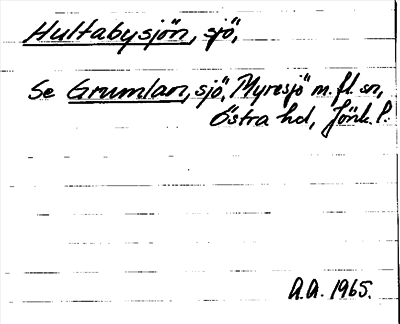 Hultabysjön, sjö,
Se Grumlan, sjö, Myresjö m. fl. sn,
Östra hd, Jönk. l.
A.A. 1965.